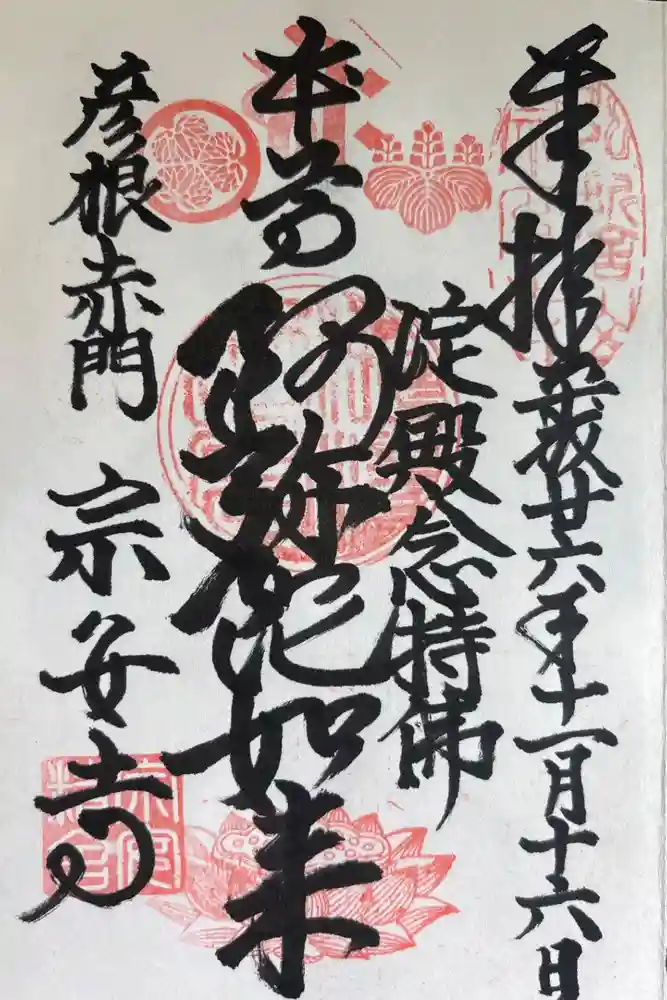 奉拝 平成廿六年十一月十六日
淀殿念持佛
本尊 阿弥陀如来
彦根赤門 宗安寺